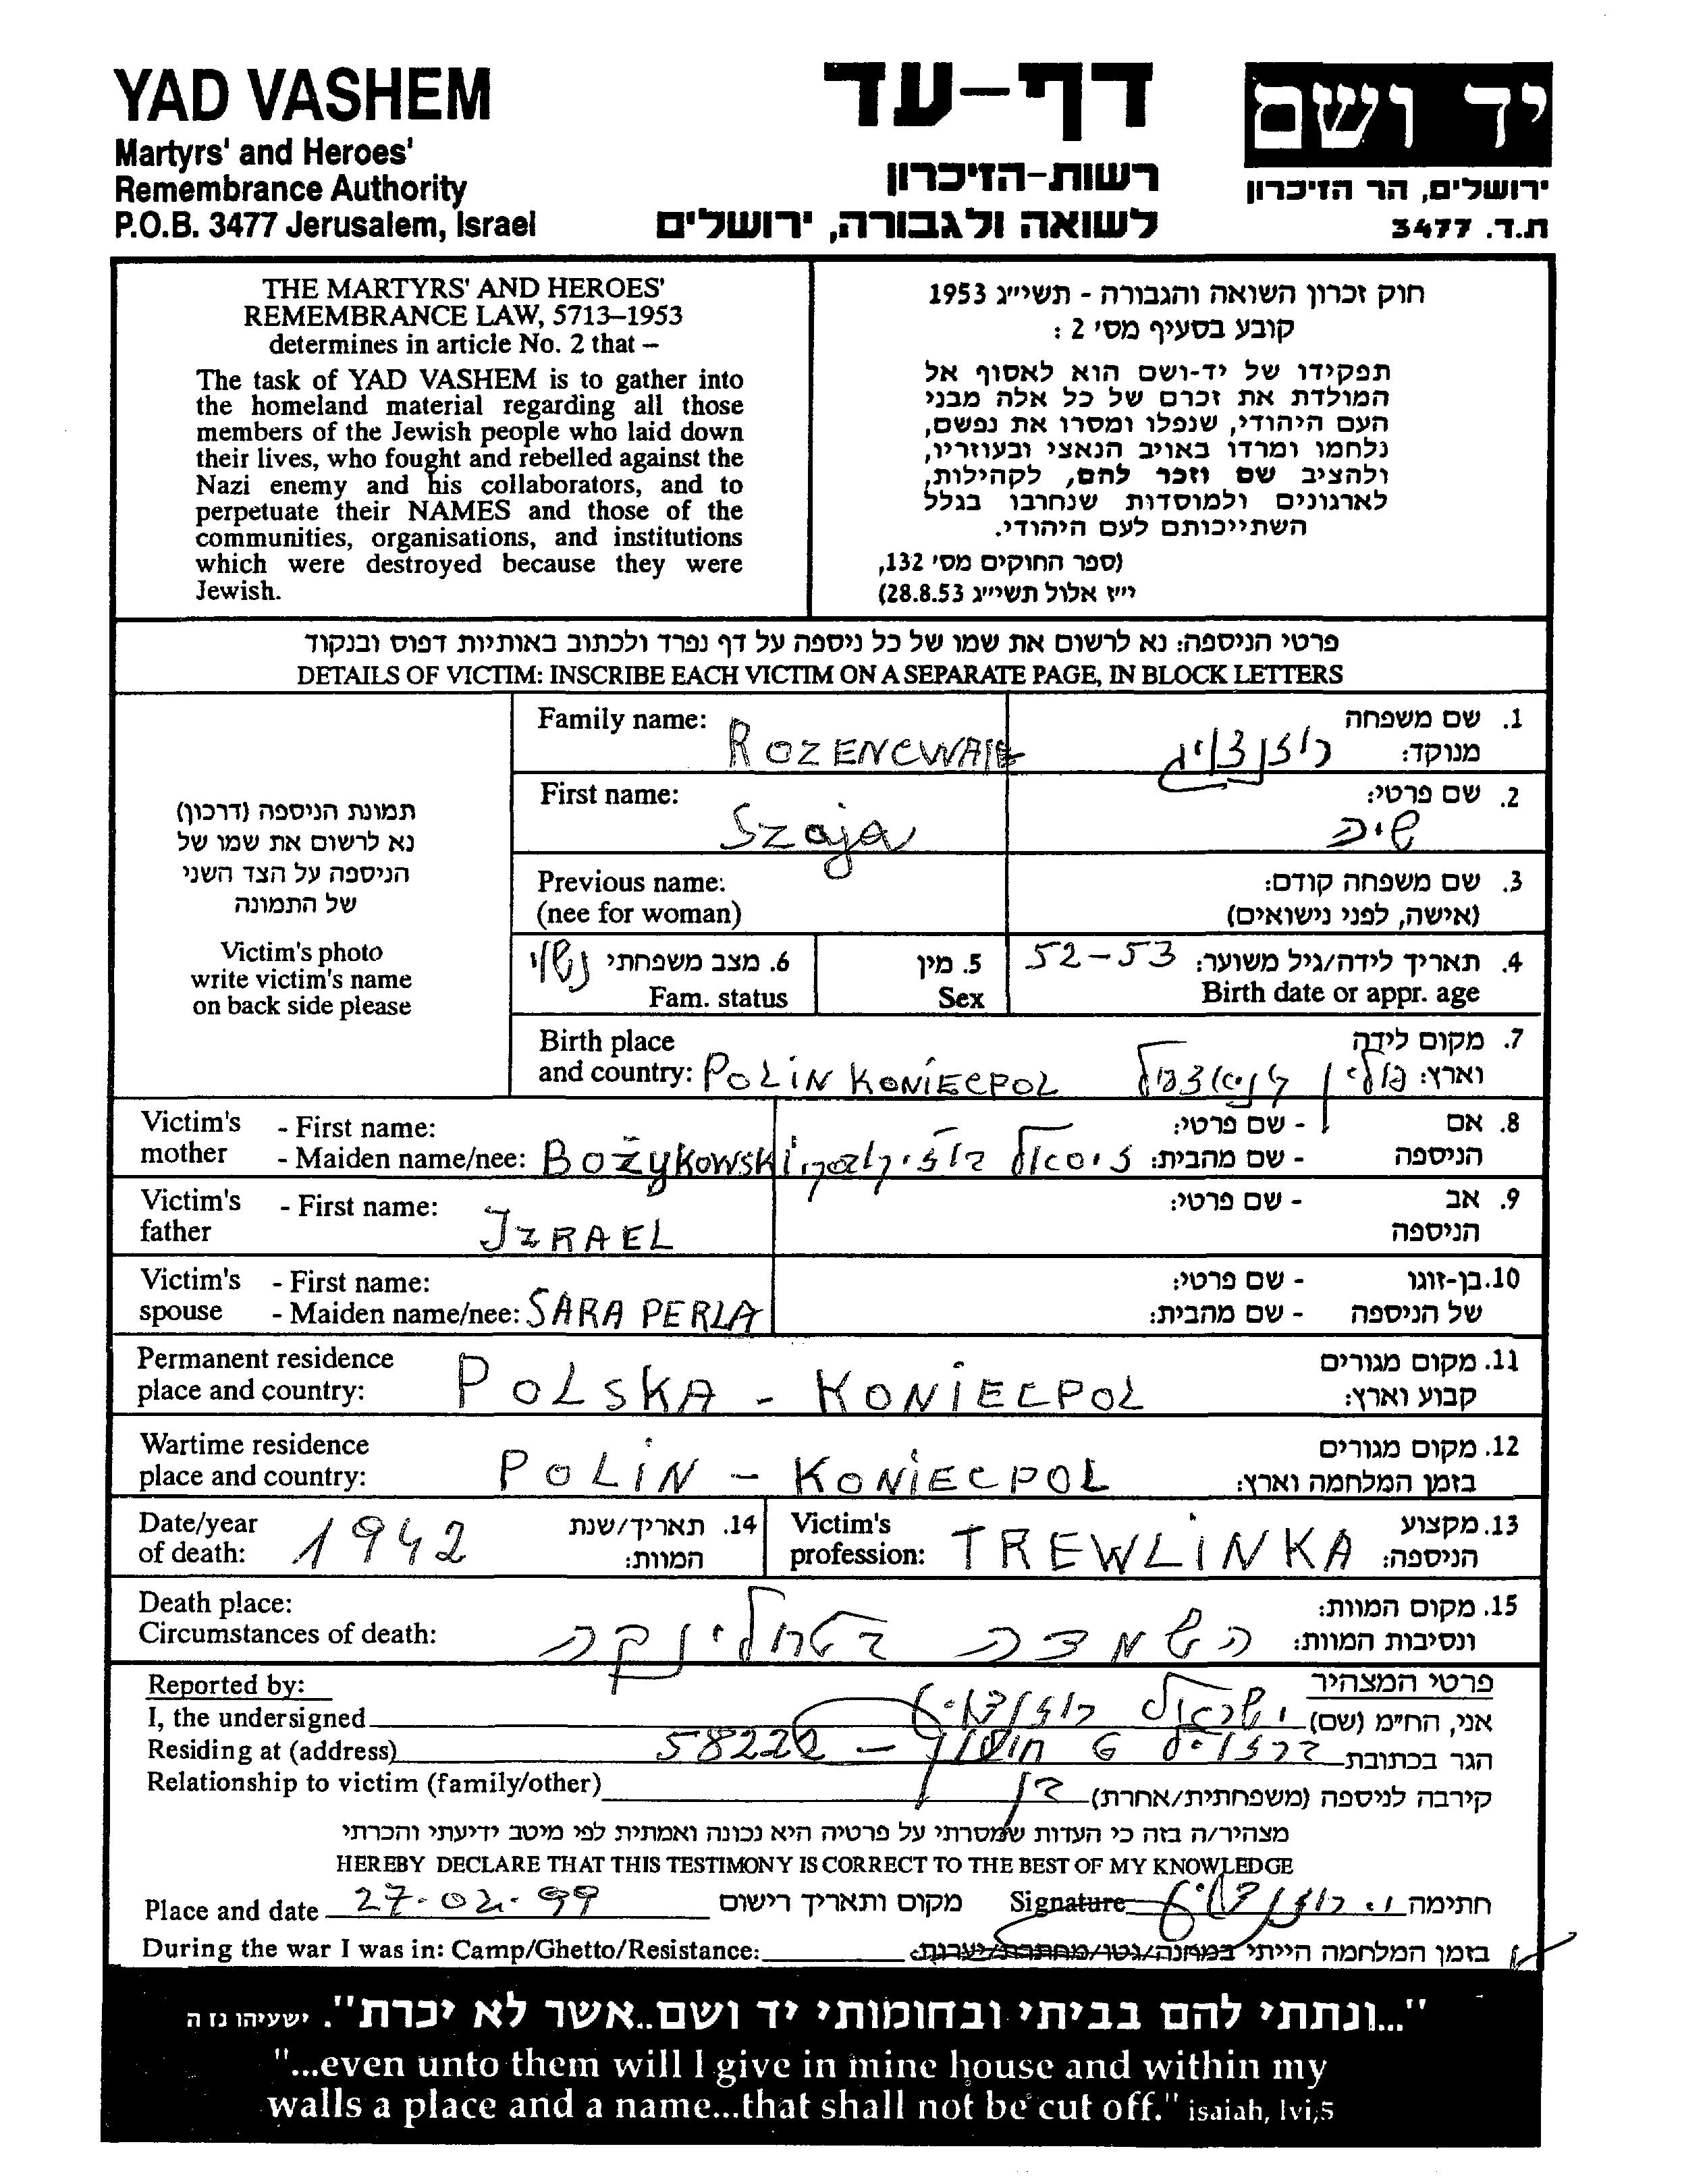 YAD VASHEM
Martyrs' and Heroes'
Remembrance Authority
P.O.B. 3477 Jerusalem, Israel
דף-עד
רשות-הזיכרון
לשואה ולגבורה, ירושלים
יד ושם
ירושלים, הר הזיכרון
ת.ד. 3477
THE MARTYRS' AND HEROES'
REMEMBRANCE LAW, 5713–1953
determines in article No. 2 that –
The task of YAD VASHEM is to gather into
the homeland material regarding all those
members of the Jewish people who laid down
their lives, who fought and rebelled against the
Nazi enemy and his collaborators, and to
perpetuate their NAMES and those of the
communities, organisations, and institutions
which were destroyed because they were
Jewish.
חוק זכרון השואה והגבורה - תשי״ג 1953
קובע בסעיף מס׳ 2 :
תפקידו של יד-ושם הוא לאסוף אל
המולדת את זכרם של כל אלה מבני
העם היהודי, שנפלו ומסרו את נפשם,
נלחמו ומרדו באויב הנאצי ובעוזריו,
ולהציב שם וזכר להם, לקהילות,
לארגונים ולמוסדות שנחרבו בגלל
השתייכותם לעם היהודי.
(ספר החוקים מס׳ 132,
י״ז אלול תשי״ג 28.8.53)
פרטי הניספה: נא לרשום את שמו של כל ניספה על דף נפרד ולכתוב באותיות דפוס ובנקוד
DETAILS OF VICTIM: INSCRIBE EACH VICTIM ON A SEPARATE PAGE, IN BLOCK LETTERS
תמונת הניספה (דרכון)
נא לרשום את שמו של
הניספה על הצד השני
של התמונה
Victim's photo
write victim's name
on back side please
Family name: ROZENCWAIG
1. שם משפחה
מנוקד: רוזנצויג
First name: Szaja
2. שם פרטי:
שיה
Previous name:
(nee for woman)
3. שם משפחה קודם:
(אישה, לפני נישואים)
4. תאריך לידה/גיל משוער: 52-53
Birth date or appr. age
5. מין
Sex
6. מצב משפחתי נשוי
Fam. status
Birth place
and country: POLIN KONIECPOL
7. מקום לידה
וארץ: פולין
Victim's mother
- First name:
- Maiden name/nee: Bożykowski
8. אם הניספה
- שם פרטי:
- שם מהבית:
Victim's father
- First name: IZRAEL
9. אב הניספה
- שם פרטי:
Victim's spouse
- First name:
- Maiden name/nee: SARA PERLA
10. בן-זוגו של הניספה
- שם פרטי:
- שם מהבית:
Permanent residence
place and country: POLSKA - KONIECPOL
11. מקום מגורים
קבוע וארץ:
Wartime residence
place and country: POLIN - KONIECPOL
12. מקום מגורים
בזמן המלחמה וארץ:
Date/year
of death: 1942
14. תאריך/שנת
המוות:
Victim's
profession: TREWLINKA
13. מקצוע
הניספה:
Death place:
Circumstances of death:
15. מקום המוות:
ונסיבות המוות: השמדה בטרלינקה
Reported by:
פרטי המצהיר
I, the undersigned
אני, הח״מ (שם) ישראל רוזנצויג
Residing at (address)
הגר בכתובת 6 חולון - 58222
Relationship to victim (family/other)
קירבה לניספה (משפחתית/אחרת) בן
מצהיר/ה בזה כי העדות שמסרתי על פרטיה היא נכונה ואמתית לפי מיטב ידיעתי והכרתי
HEREBY DECLARE THAT THIS TESTIMONY IS CORRECT TO THE BEST OF MY KNOWLEDGE
Place and date 27-02-99 מקום ותאריך רישום
Signature חתימה י. רוזנצויג
During the war I was in: Camp/Ghetto/Resistance:
בזמן המלחמה הייתי במחנה/גטו/מחתרת/יערות:
"...ונתתי להם בביתי ובחומותי יד ושם..אשר לא יכרת". ישעיהו נו ה
"...even unto them will I give in mine house and within my
walls a place and a name...that shall not be cut off." isaiah, lvi,5